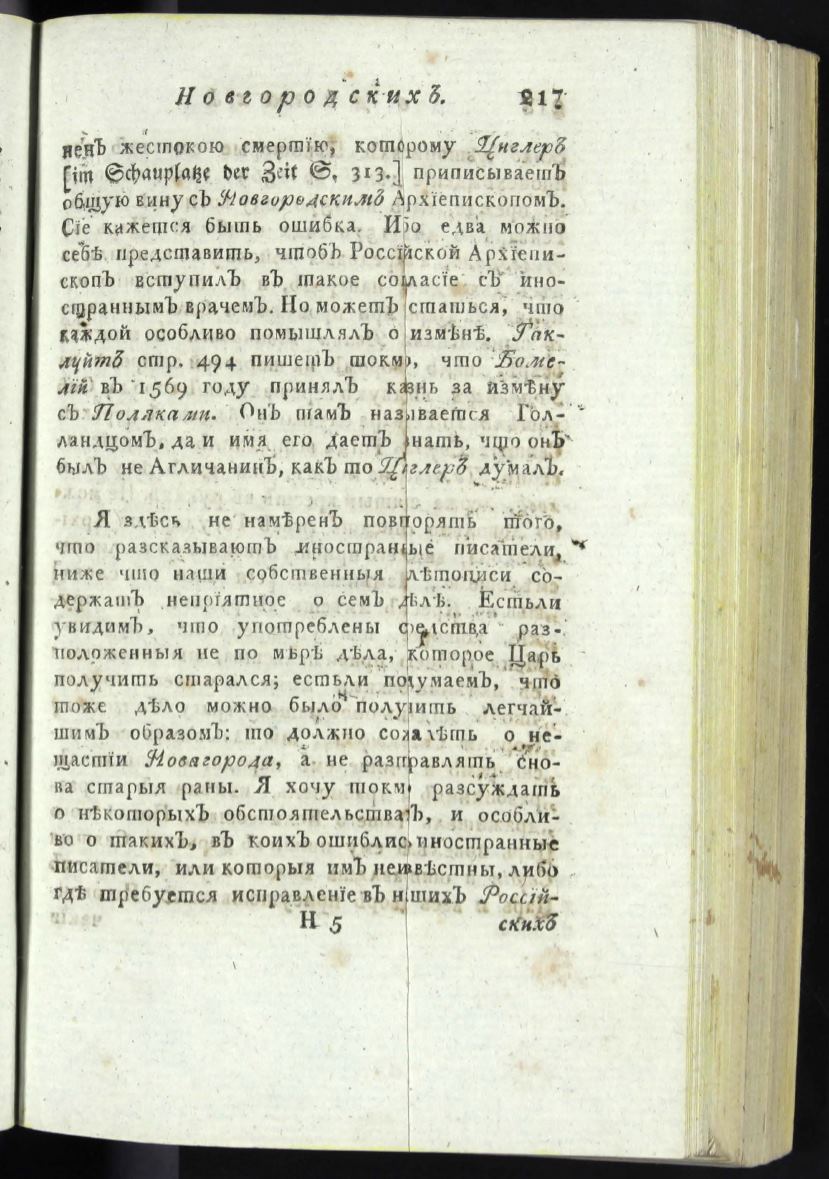 Новгородскихъ. 217
ненъ жестокою смертїю, которому Циглеръ
[im Schauplatze der Zeit S. 313.] приписываетъ
общую вину съ Новгородскимъ Архїепископомъ.
Сїе кажется быть ошибка. Ибо едва можно
себѣ представить, чтобъ Россїйской Архїепи-
скопъ вступилъ въ такое согласїе съ ино-
страннымъ врачемъ. Но можетъ статься, что
каждой особливо помышлялъ о измѣнѣ. Гак-
луйтъ стр. 494 пишетъ токмо, что Боме-
лїй въ 1569 году принялъ казнь за измѣну
съ Поляками. Онъ тамъ называется Гол-
ландцомъ, да и имя его даетъ знать, что онъ
былъ не Агличанинъ, какъ то Циглеръ думалъ.
Я здѣсь не намѣренъ повторять того,
что разсказываютъ иностранные писатели,
ниже что наши собственныя лѣтописи со-
держатъ непрїятное о семъ дѣлѣ. Естьли
увидимъ, что употреблены средства раз-
положенныя не по мѣрѣ дѣла, которое Царь
получить старался; естьли подумаемъ, что
тоже дѣло можно было получить легчай-
шимъ образомъ: то должно сожалѣть о не-
щастїи Новагорода, а не разтравлять сно-
ва старыя раны. Я хочу токмо разсуждать
о нѣкоторыхъ обстоятельствахъ, и особли-
во о такихъ, въ коихъ ошиблись иностранные
писатели, или которыя имъ неизвѣстны, либо
гдѣ требуется исправленїе въ нашихъ Россїй-
Н 5 скихъ